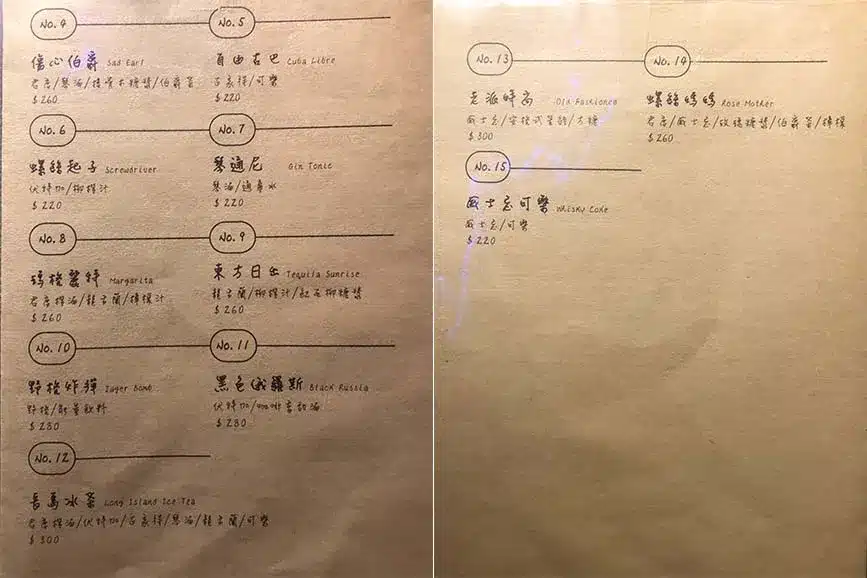 No. 4
傷心伯爵 Sad Earl
君度/琴酒/接骨木糖漿/伯爵茶
$ 260
No. 5
自由古巴 Cuba Libre
古家得/可樂
$ 220
No. 6
螺絲起子 Screwdriver
伏特加/柳橙汁
$ 220
No. 7
琴通尼 Gin Tonic
琴酒/通寧水
$ 220
No. 8
瑪格麗特 Margarita
君度橙酒/龍舌蘭/檸檬汁
$ 260
No. 9
東方日出 Tequila Sunrise
龍舌蘭/柳橙汁/紅石榴糖漿
$ 260
No. 10
野格炸彈 Jager Bomb
野格/能量飲料
$ 280
No. 11
黑色俄羅斯 Black Russia
伏特加/咖啡香甜酒
$ 280
No. 12
長島冰茶 Long Island Ice Tea
君度橙酒/伏特加/古家得/琴酒/龍舌蘭/可樂
$ 300
No. 13
老派時尚 Old Fashioned
威士忌/安格式苦酒/方糖
$ 300
No. 14
螺絲媽媽 Rose Mother
君度/威士忌/玫瑰糖漿/伯爵茶/檸檬
$ 260
No. 15
威士忌可樂 Whisky Coke
威士忌/可樂
$ 220